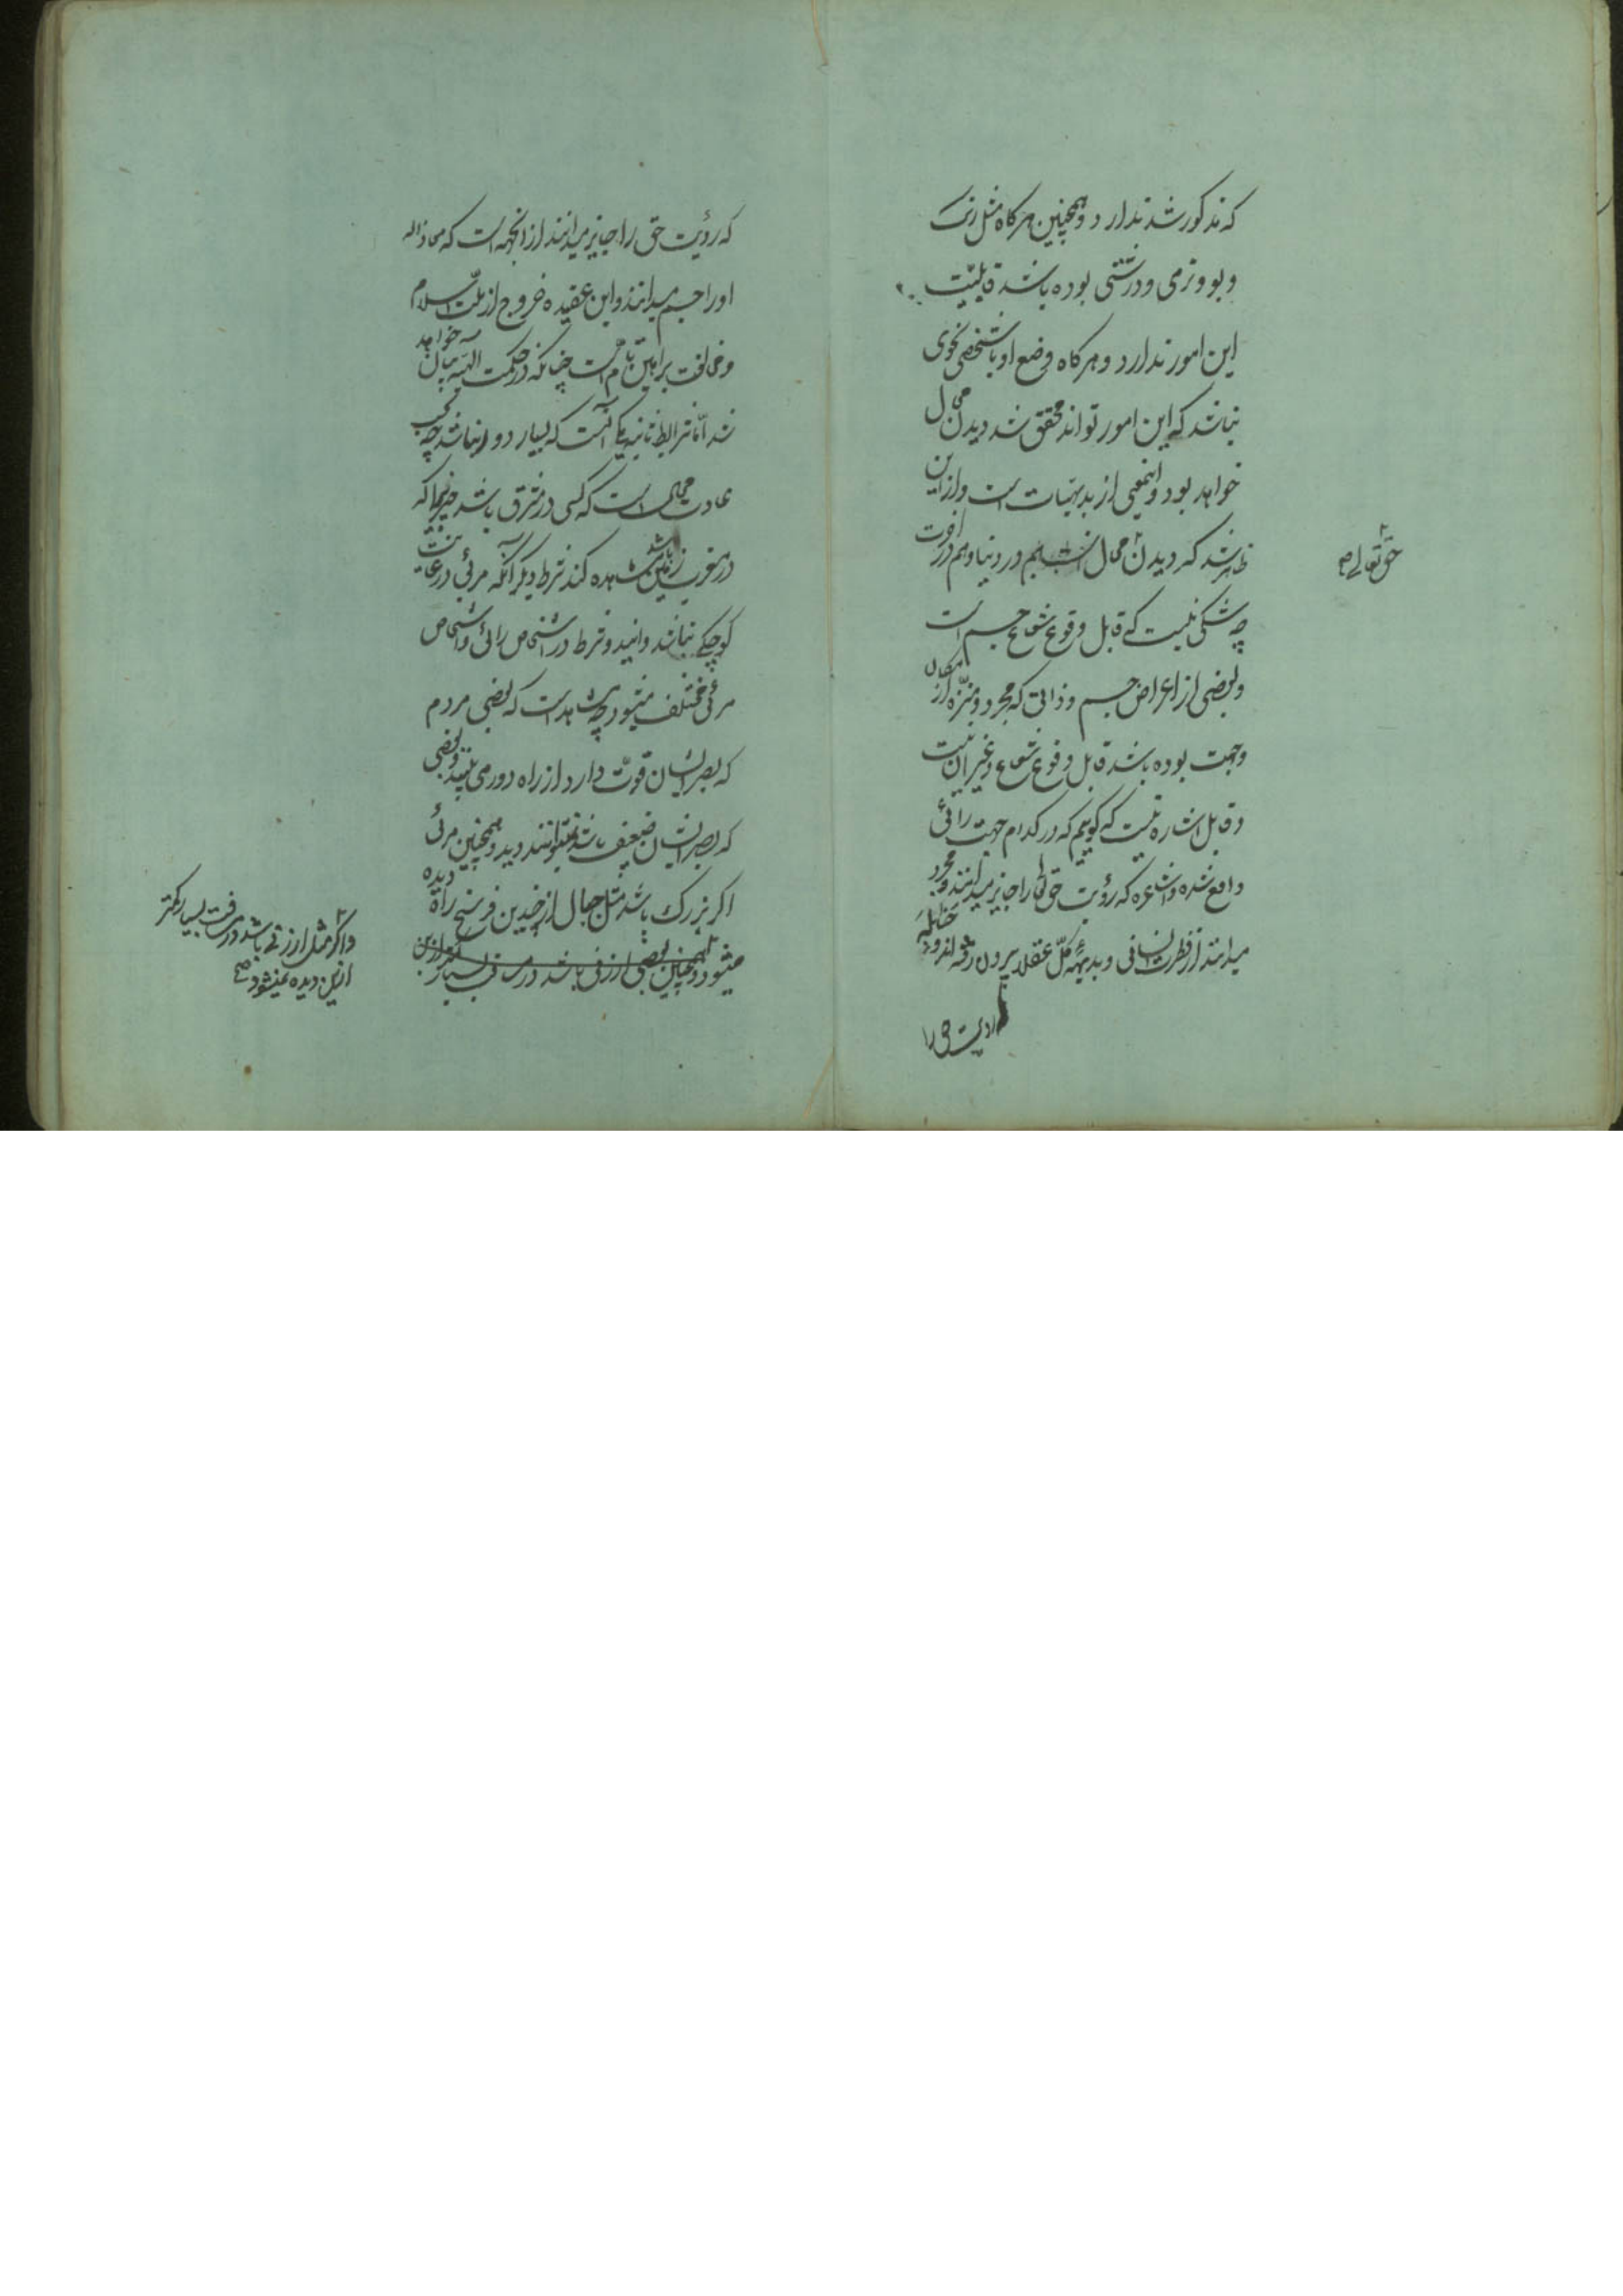 که مذکور شد ندارد و همچنین هرکاه مثل رنک
و بو و نرمی و درشتی بوده باشد قابلیّت
این امور ندارد و هرکاه وضع او با شخصی نحوی
نباشد که این امور تواند محقق شد دیدن محال
خواهد بود و اینمعنی از بدیهیّات است و از این
ظاهر شد که دیدن محال است هم در دنیا و هم در آخرت
حق تعالی صح
چه شکی نیست که قابل وقوع شعاع جسم است
و بعضی از اعراض جسم و ذاتی که مجرد و منزّه از مکان
و جهت بوده باشد قابل وقوع شعاع و غیر آن نیست
و قابل اشاره نیست که کوییم که در کدام جهت رائی
واقع شده و اشاعره که رؤیت حق تعالی را جایز میدانند و مجرد
میدانند از فطرت انسانی و بدیههٔ کل عقلا بیرون رفته اند و حنابله
رؤیت حق را
که رؤیت حق را جایز میدانند از انجهه است که معاذ الله
او را جسم میدانند و این عقیده خروج از ملّت اسلام
و مخالفت براهین تامّ است چنانکه در حکمت الهیه بیان خواهد
شد امّا شرایط ثانیه یکی آنست که بسیار دور نباشد چه بحسب
عادت محال است که کسی در مشرق باشد چیزیرا که
در مغرب زمین باشد مشاهده کند شرط دیکر آنکه مرئی در غایت
کوچکی نباشد و ایندو شرط در اشخاص رائی و اشخاص
مرئی مختلف میشود چه مشاهد است که بعضی مردم
که بصر ایشان قوّت دارد از راه دور می بینند و بعضی
که بصر ایشان ضعیف باشد نمیتوانند دید و همچنین مرئی
اکر بزرک باشد مثل جبال از چندین فرسخ راه دیده
میشود و همچنین بعضی ارزنی باشد در مسافت بسیار کمتر ازین
و اکر مثل ارزنی باشد در مسافت بسیار کمتر
ازین دیده نمیشود صح